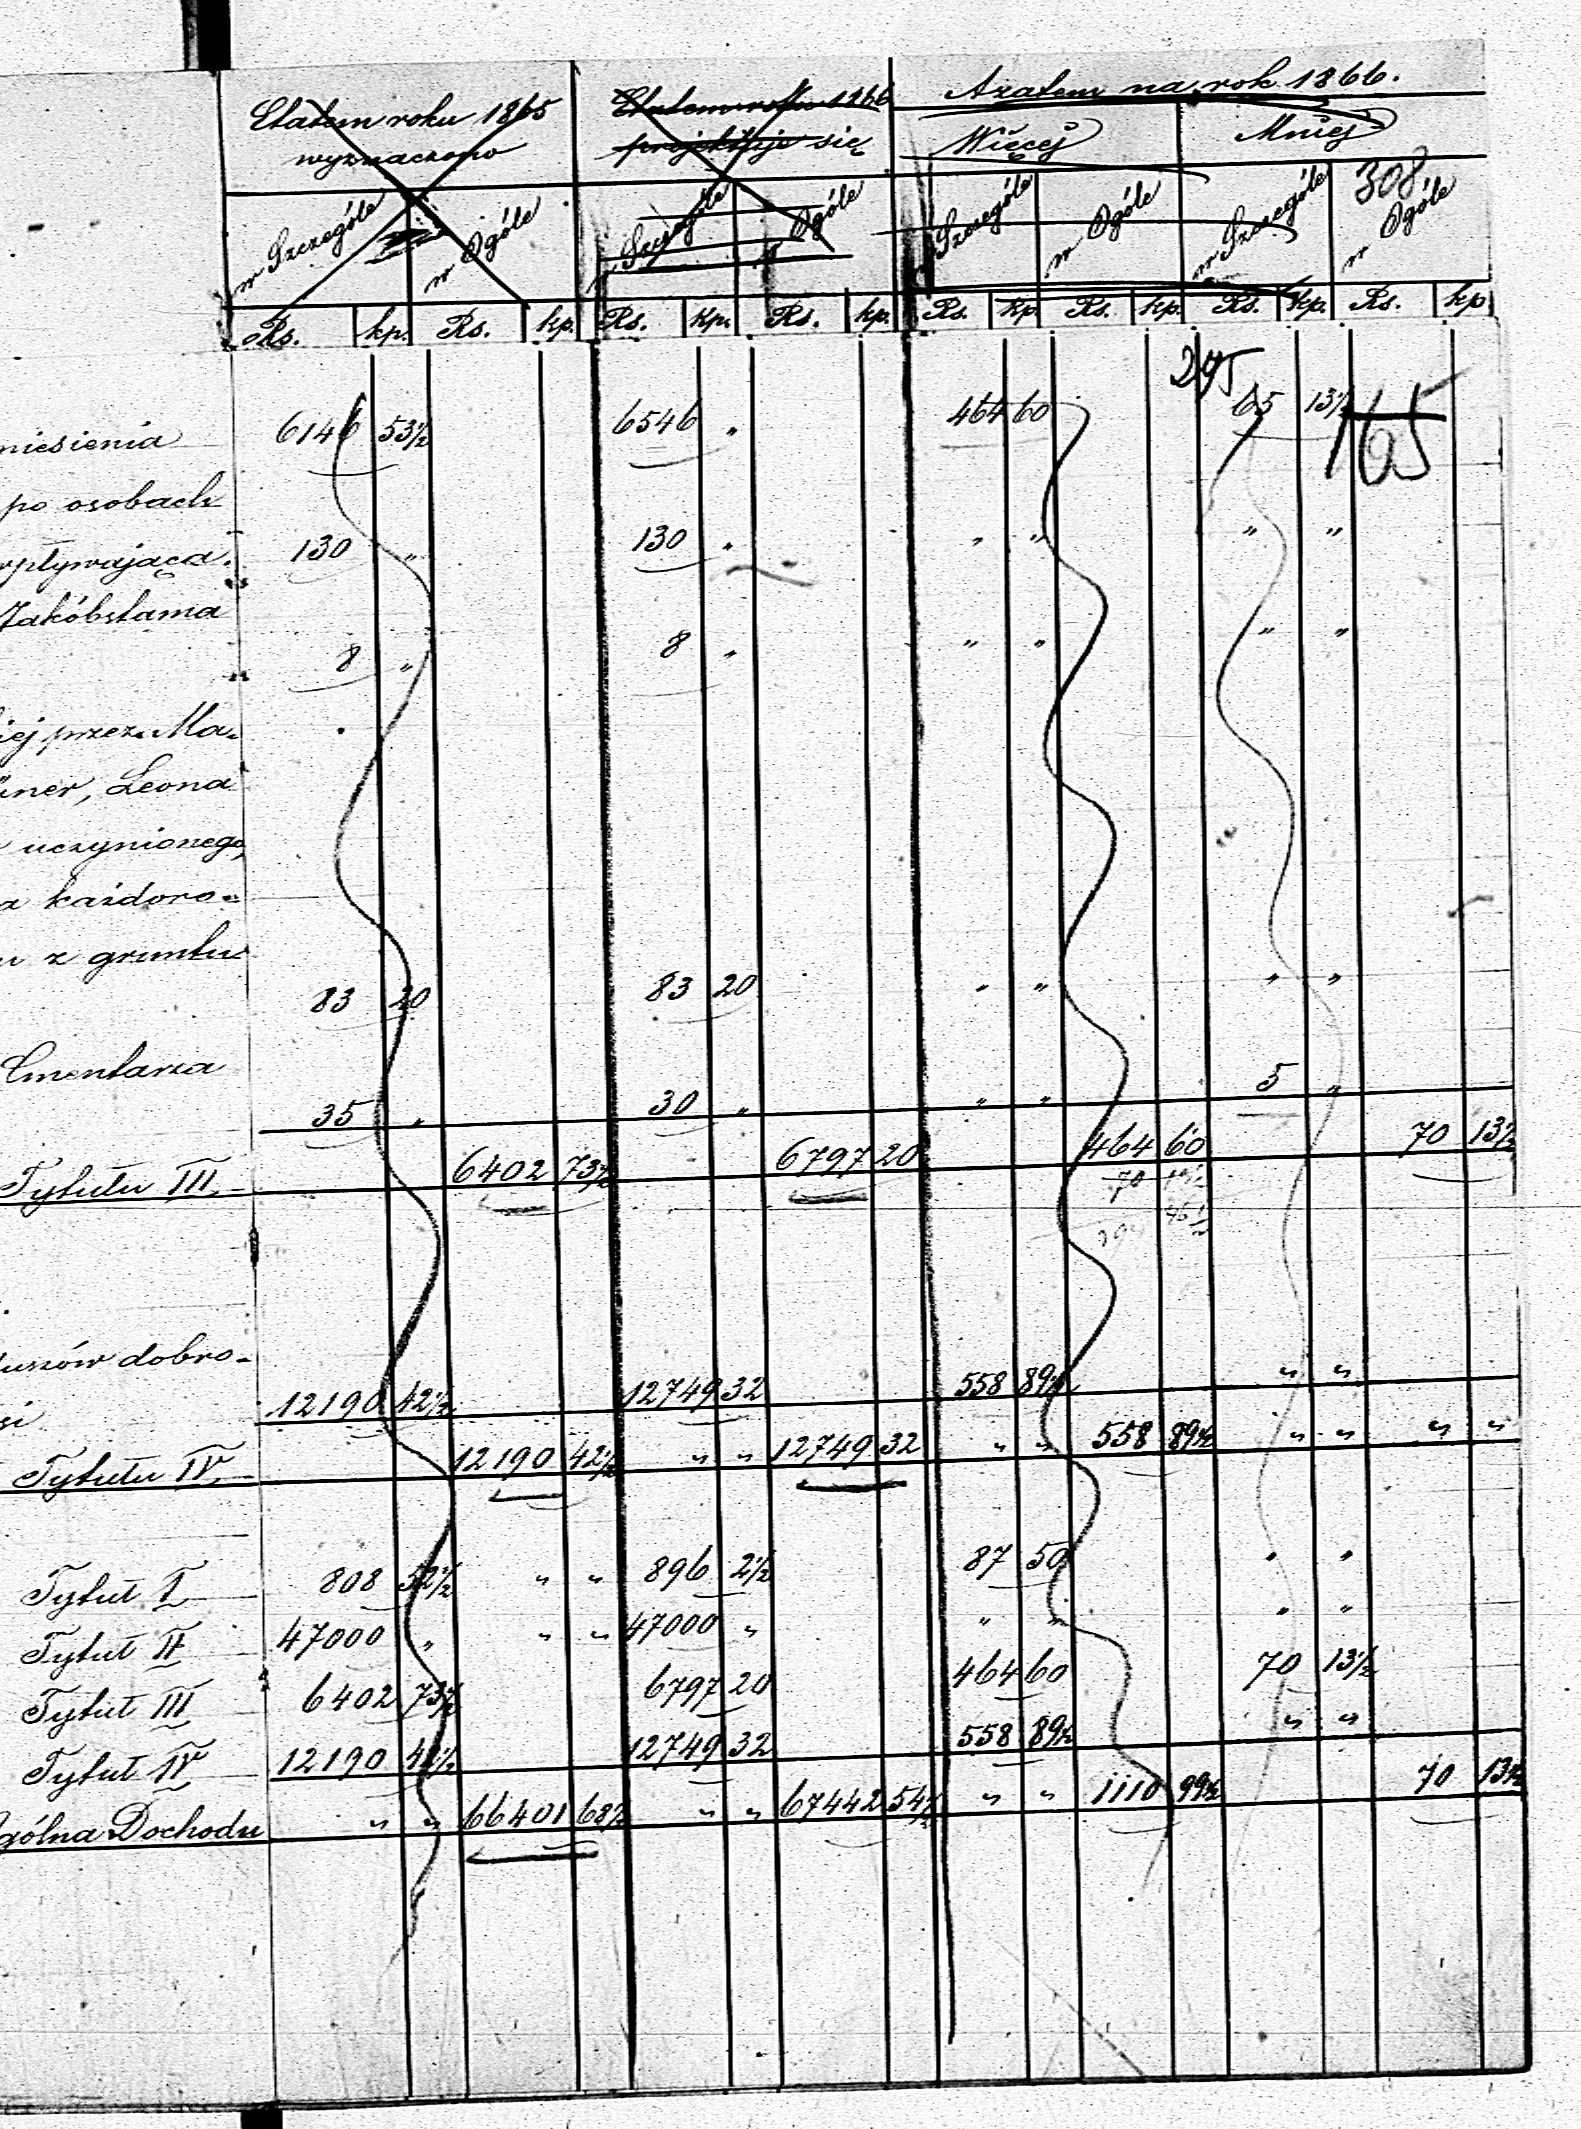 Etatem roku 1865 Etatem roku 1866 A zatem na rok 1866.
wyznaczono projektuje się Więcej Mniej
308
w Szczególe w Ogóle w Szczególe w Ogóle w Szczególe w Ogóle w Szczególe w Ogóle
Rs. kp. Rs. kp. Rs. kp. Rs. kp. Rs. kp. Rs. kp. Rs. kp. Rs. kp.
165
niesienia 6146 53½ 6546 " 464 60 65 13½
po osobach
wpływająca. 130 " 130 " " " " "
Jakóbstama
8 " 8 " " " " "
iej przez Ma-
ner, Leona
uczynionego,
a kaźdoro-
u z gruntu
83 20 83 20 " " " "
Cmentarza
35 " 30 " " " 5 "
Tytułu III 6402 73½ 6797 20 464 60 70 13½
70 13½
uszów dobro-
si 12190 42½ 12749 32 558 89½ " "
Tytułu IV 12190 42½ " " 12749 32 " " 558 89½ " " " "
Tytuł I 808 52½ " " 896 2½ 87 50 " "
Tytuł II 47000 " " " 47000 " " " " "
Tytuł III 6402 73½ 6797 20 464 60 70 13½
Tytuł IV 12190 42½ 12749 32 558 89½ " "
gólna Dochodu " " 66401 68½ " " 67442 54½ " " 1110 99½ 70 13½